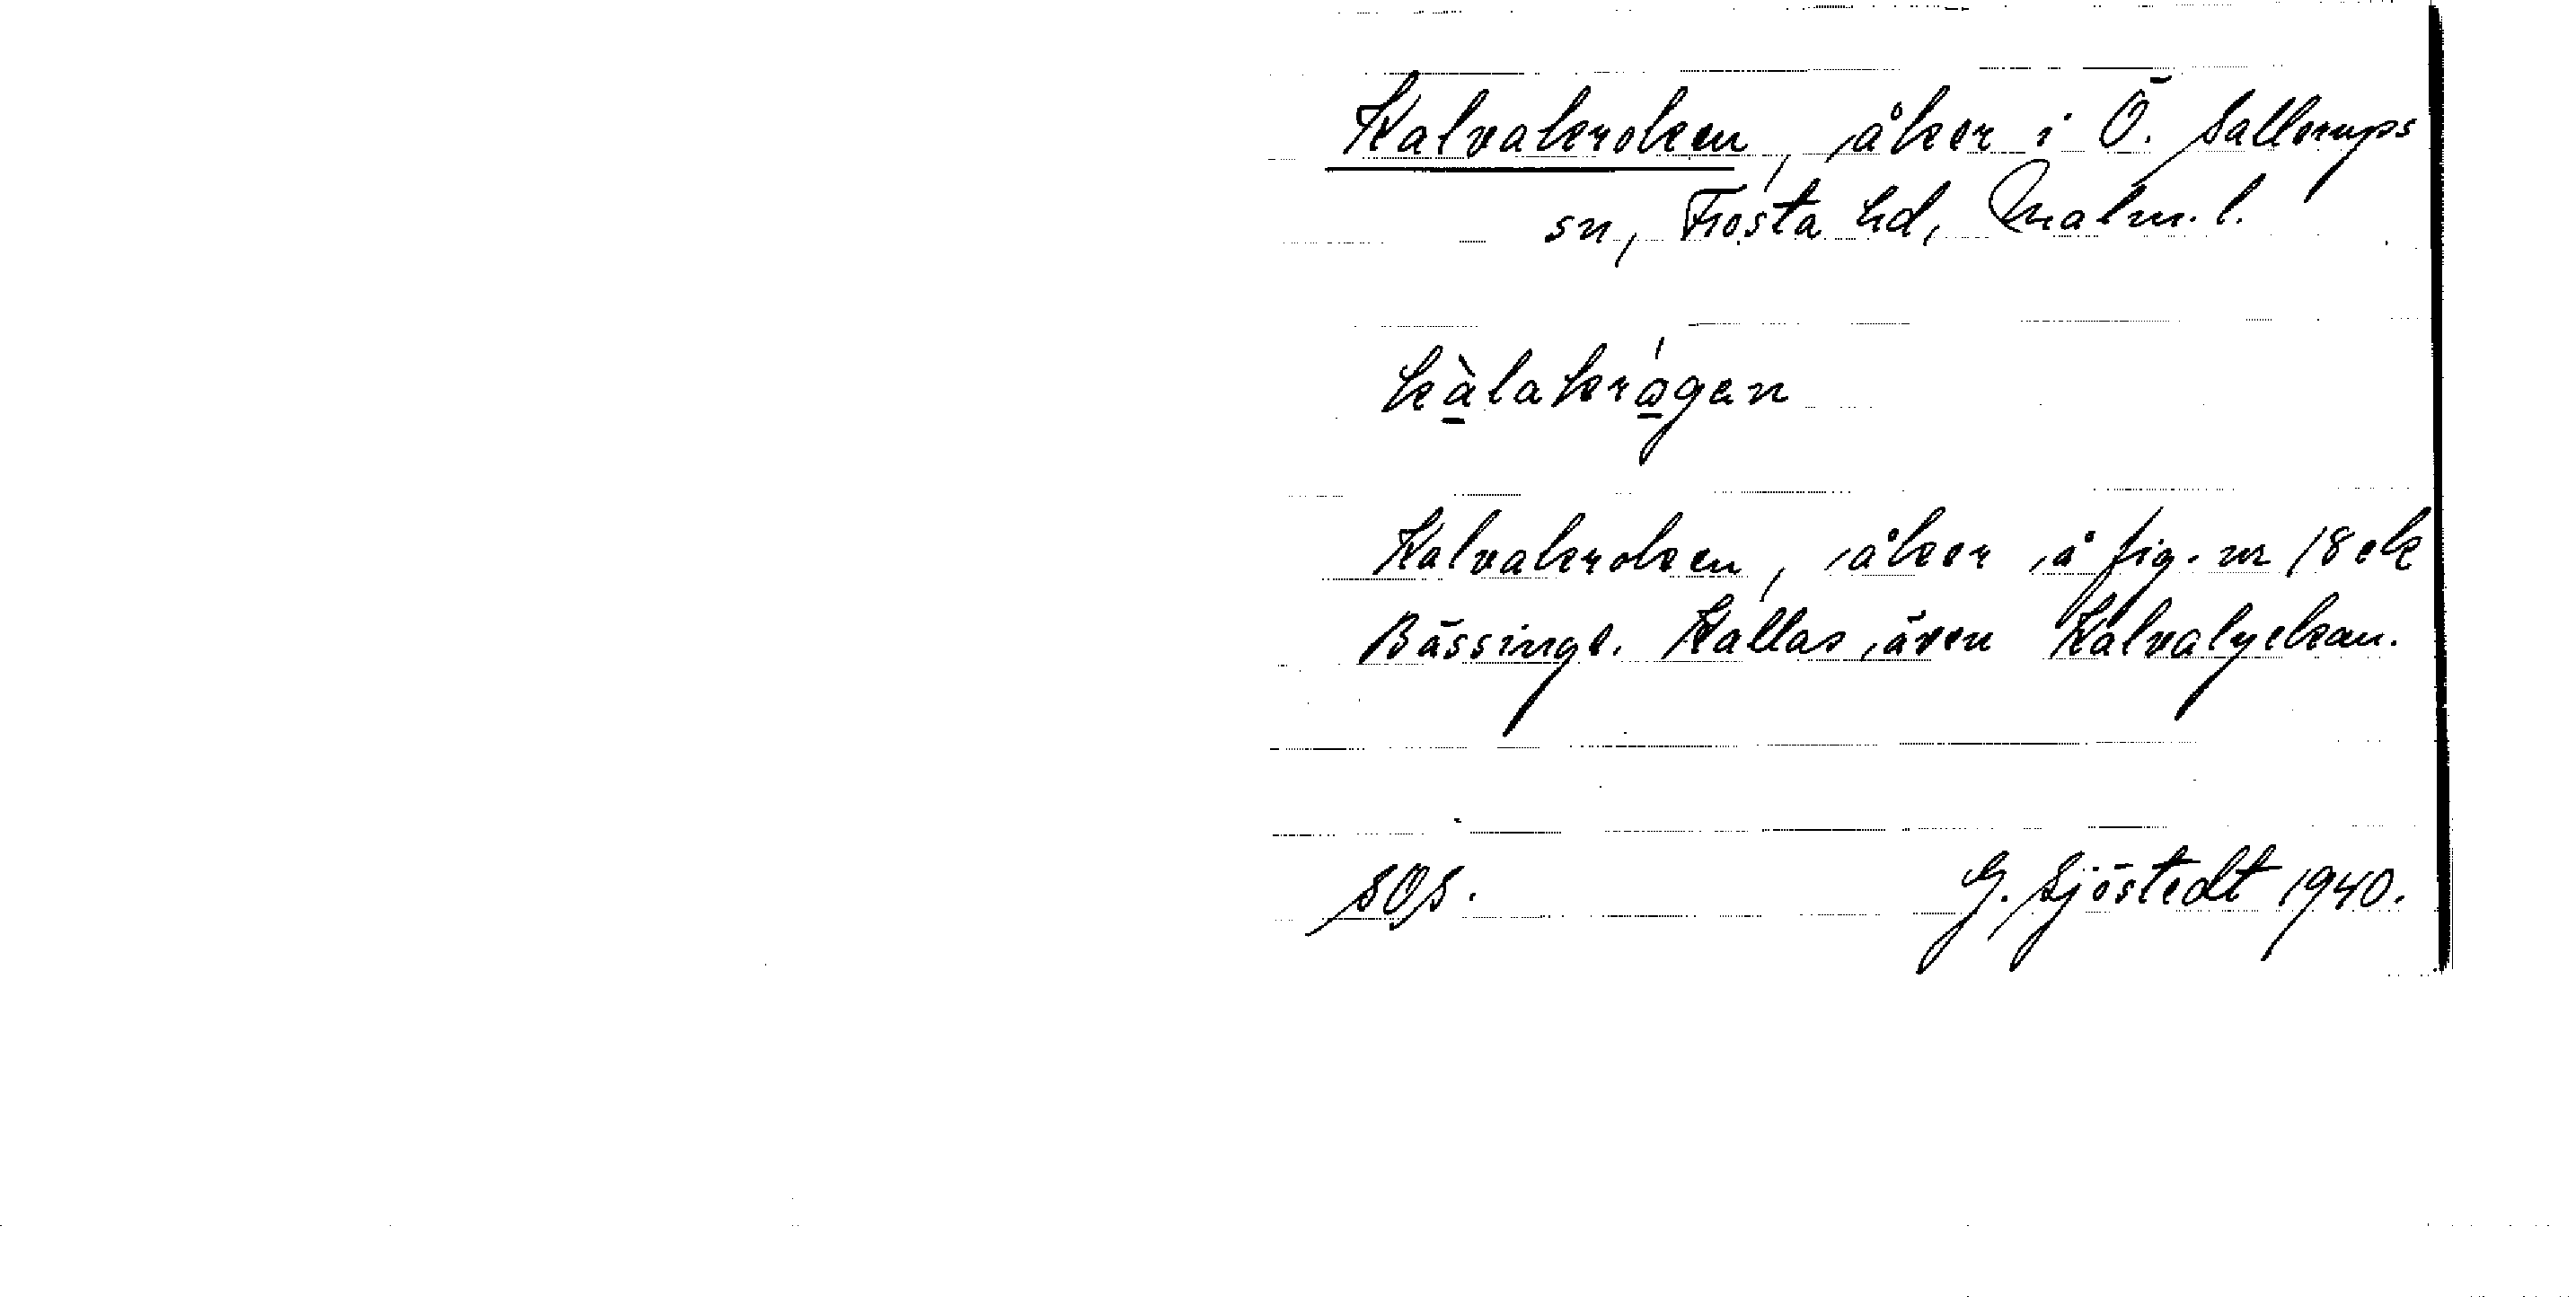 Kalvakroken, åker i Ö. Sallerups
sn, Frosta hd, Malm. l.
kàlakrågen
Kalvakroken, åker å fig. nr 18 ek
Bässinge. Kallas även Kalvalyckan.
SOS.
G. Sjöstedt 1940.